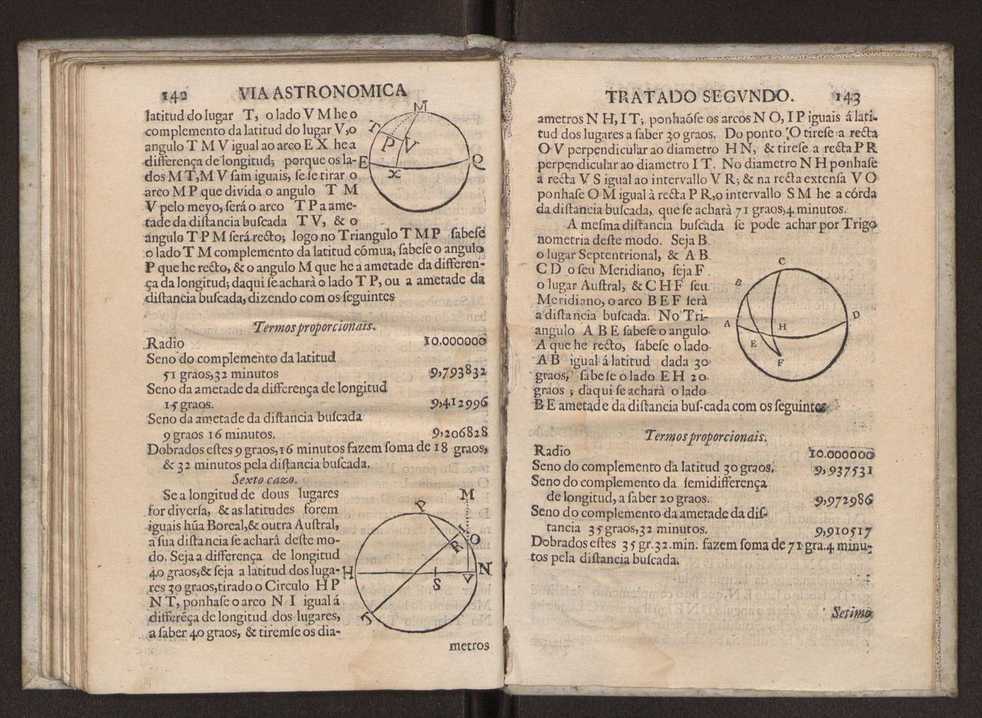 142 VIA ASTRONOMICA
latitud do lugar T, o lado V M he o
complemento da latitud do lugar V, o
angulo T M V igual ao arco E X he a
differença de longitud; porque os la-
dos M T, M V sam iguais, se se tirar o
arco M P que divida o angulo T M
V pelo meyo, será o arco T P a ame-
tade da distancia buscada T V, & o
angulo T P M será recto; logo no Triangulo T M P sabese
o lado T M complemento da latitud cómua, sabese o angulo
P que he recto, & o angulo M que he a ametade da differen-
ça da longitud; daqui se achará o lado T P, ou a ametade da
distancia buscada, dizendo com os seguintes
Termos proporcionais.
Radio 10.000000
Seno do complemento da latitud
51 graos, 32 minutos 9,793832
Seno da ametade da differença de longitud
15 graos. 9,412996
Seno da ametade da distancia buscada
9 graos 16 minutos. 9,206828
Dobrados estes 9 graos, 16 minutos fazem soma de 18 graos,
& 32 minutos pela distancia buscada.
Sexto cazo.
Se a longitud de dous lugares
for diversa, & as latitudes forem
iguais hũa Boreal, & outra Austral,
a sua distancia se achará deste mo-
do. Seja a differença de longitud
40 graos, & seja a latitud dos luga-
res 30 graos, tirado o Circulo H P
N T, ponhase o arco N I igual á
differẽça de longitud dos lugares,
a saber 40 graos, & tiremse os dia-
metros
M
T
P
V
E
X
Q
P
M
I
O
R
H
N
S
V
T
TRATADO SEGVNDO. 143
ametros N H, I T; ponhaõse os arcos N O, I P iguais á lati-
tud dos lugares a saber 30 graos. Do ponto O tirese a recta
O V perpendicular ao diametro H N, & tirese a recta P R
perpendicular ao diametro I T. No diametro N H ponhase
a recta V S igual ao intervallo V R; & na recta extensa V O
ponhase O M igual à recta P R, o intervallo S M he a córda
da distancia buscada, que se achará 71 graos, 4 minutos.
A mesma distancia buscada se pode achar por Trigo
nometria deste modo. Seja B
o lugar Septentrional, & A B
C D o seu Meridiano, seja F
o lugar Austral, & C H F seu
Meridiano, o arco B E F serà
a distancia buscada. No Tri-
angulo A B E sabese o angulo
A que he recto, sabese o lado
A B igual á latitud dada 30
graos, sabese o lado E H 20
graos ; daqui se achará o lado
B E ametade da distancia bus-cada com os seguintes
C
B
A
H
D
E
F
Termos proporcionais.
Radio 10.000000
Seno do complemento da latitud 30 graos. 9,937531
Seno do complemento da semidifferença
de longitud, a saber 20 graos. 9,972986
Seno do complemento da ametade da dis-
tancia 35 graos, 32 minutos. 9,910517
Dobrados estes 35 gr. 32. min. fazem soma de 71 gra. 4 minu-
tos pela distancia buscada.
Setimo